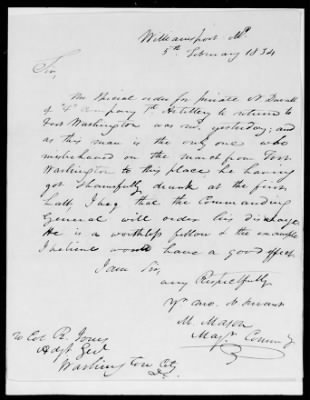 Williamsport Md
5th February 1834
Sir,
The Special order for private N Duvall
of "F" Company 1st Artillery to return to
Fort Washington was rec. yesterday; and
as this man is the only one who
misbehaved on the march from Fort
Washington to this place he having
got Shamefully drunk at the first
halt, I beg that the Commanding
General will order his discharge.
He is a worthless fellow & the example
I believe would have a good effect
I am Sir,
very Respectfully
Yr. mo. ob servant
M Mason
Majr Commg
To Col R. Jones
Adjt Genl
Washington City